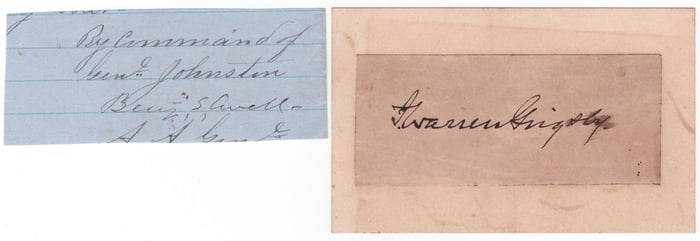 By Command of
Genl. Johnston
Benj. S. Ewell
A A Genl
J. Warren Grigsby.